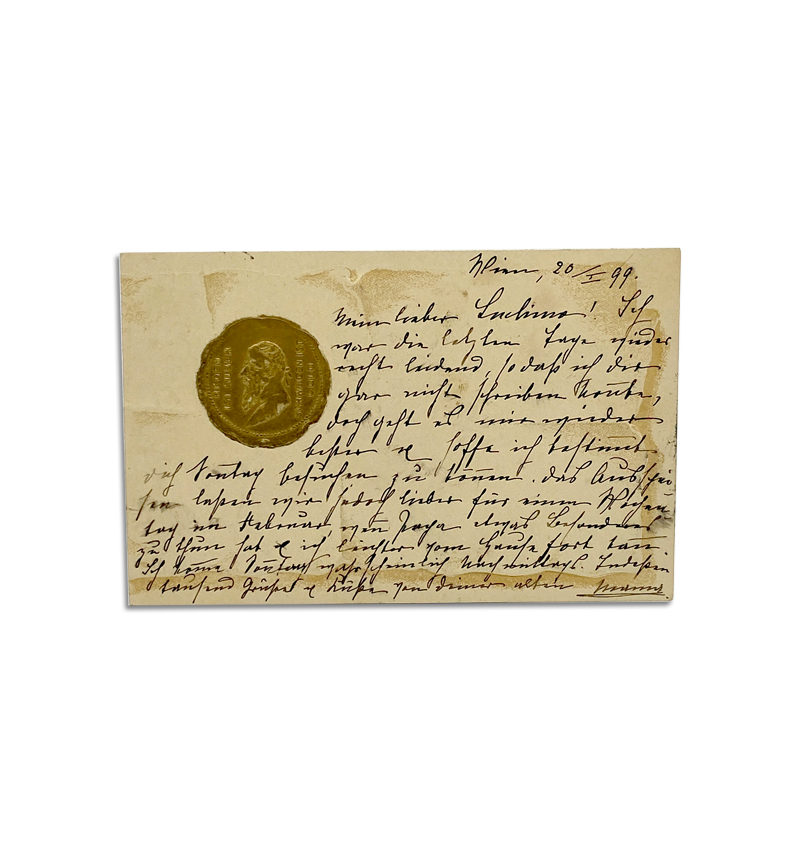 Wien, 20/I 99.
Mein lieber ! Ich
war die letzten Tage wieder
recht leidend, so daß ich dir
gar nicht schreiben konnte,
doch geht es mir wieder
besser & hoffe ich bestimmt
dich Sontag besuchen zu können. das
laßen wir jedoch lieber für einen Wochen
tag im Februar, wen Papa etwas Besonderes
zu thun hat & ich leichter vom Hause fort kann.
Ich kome Sontag wahrscheinlich Nachmittags. Indeßen
tausend Grüße & Küße von deiner alten Mama